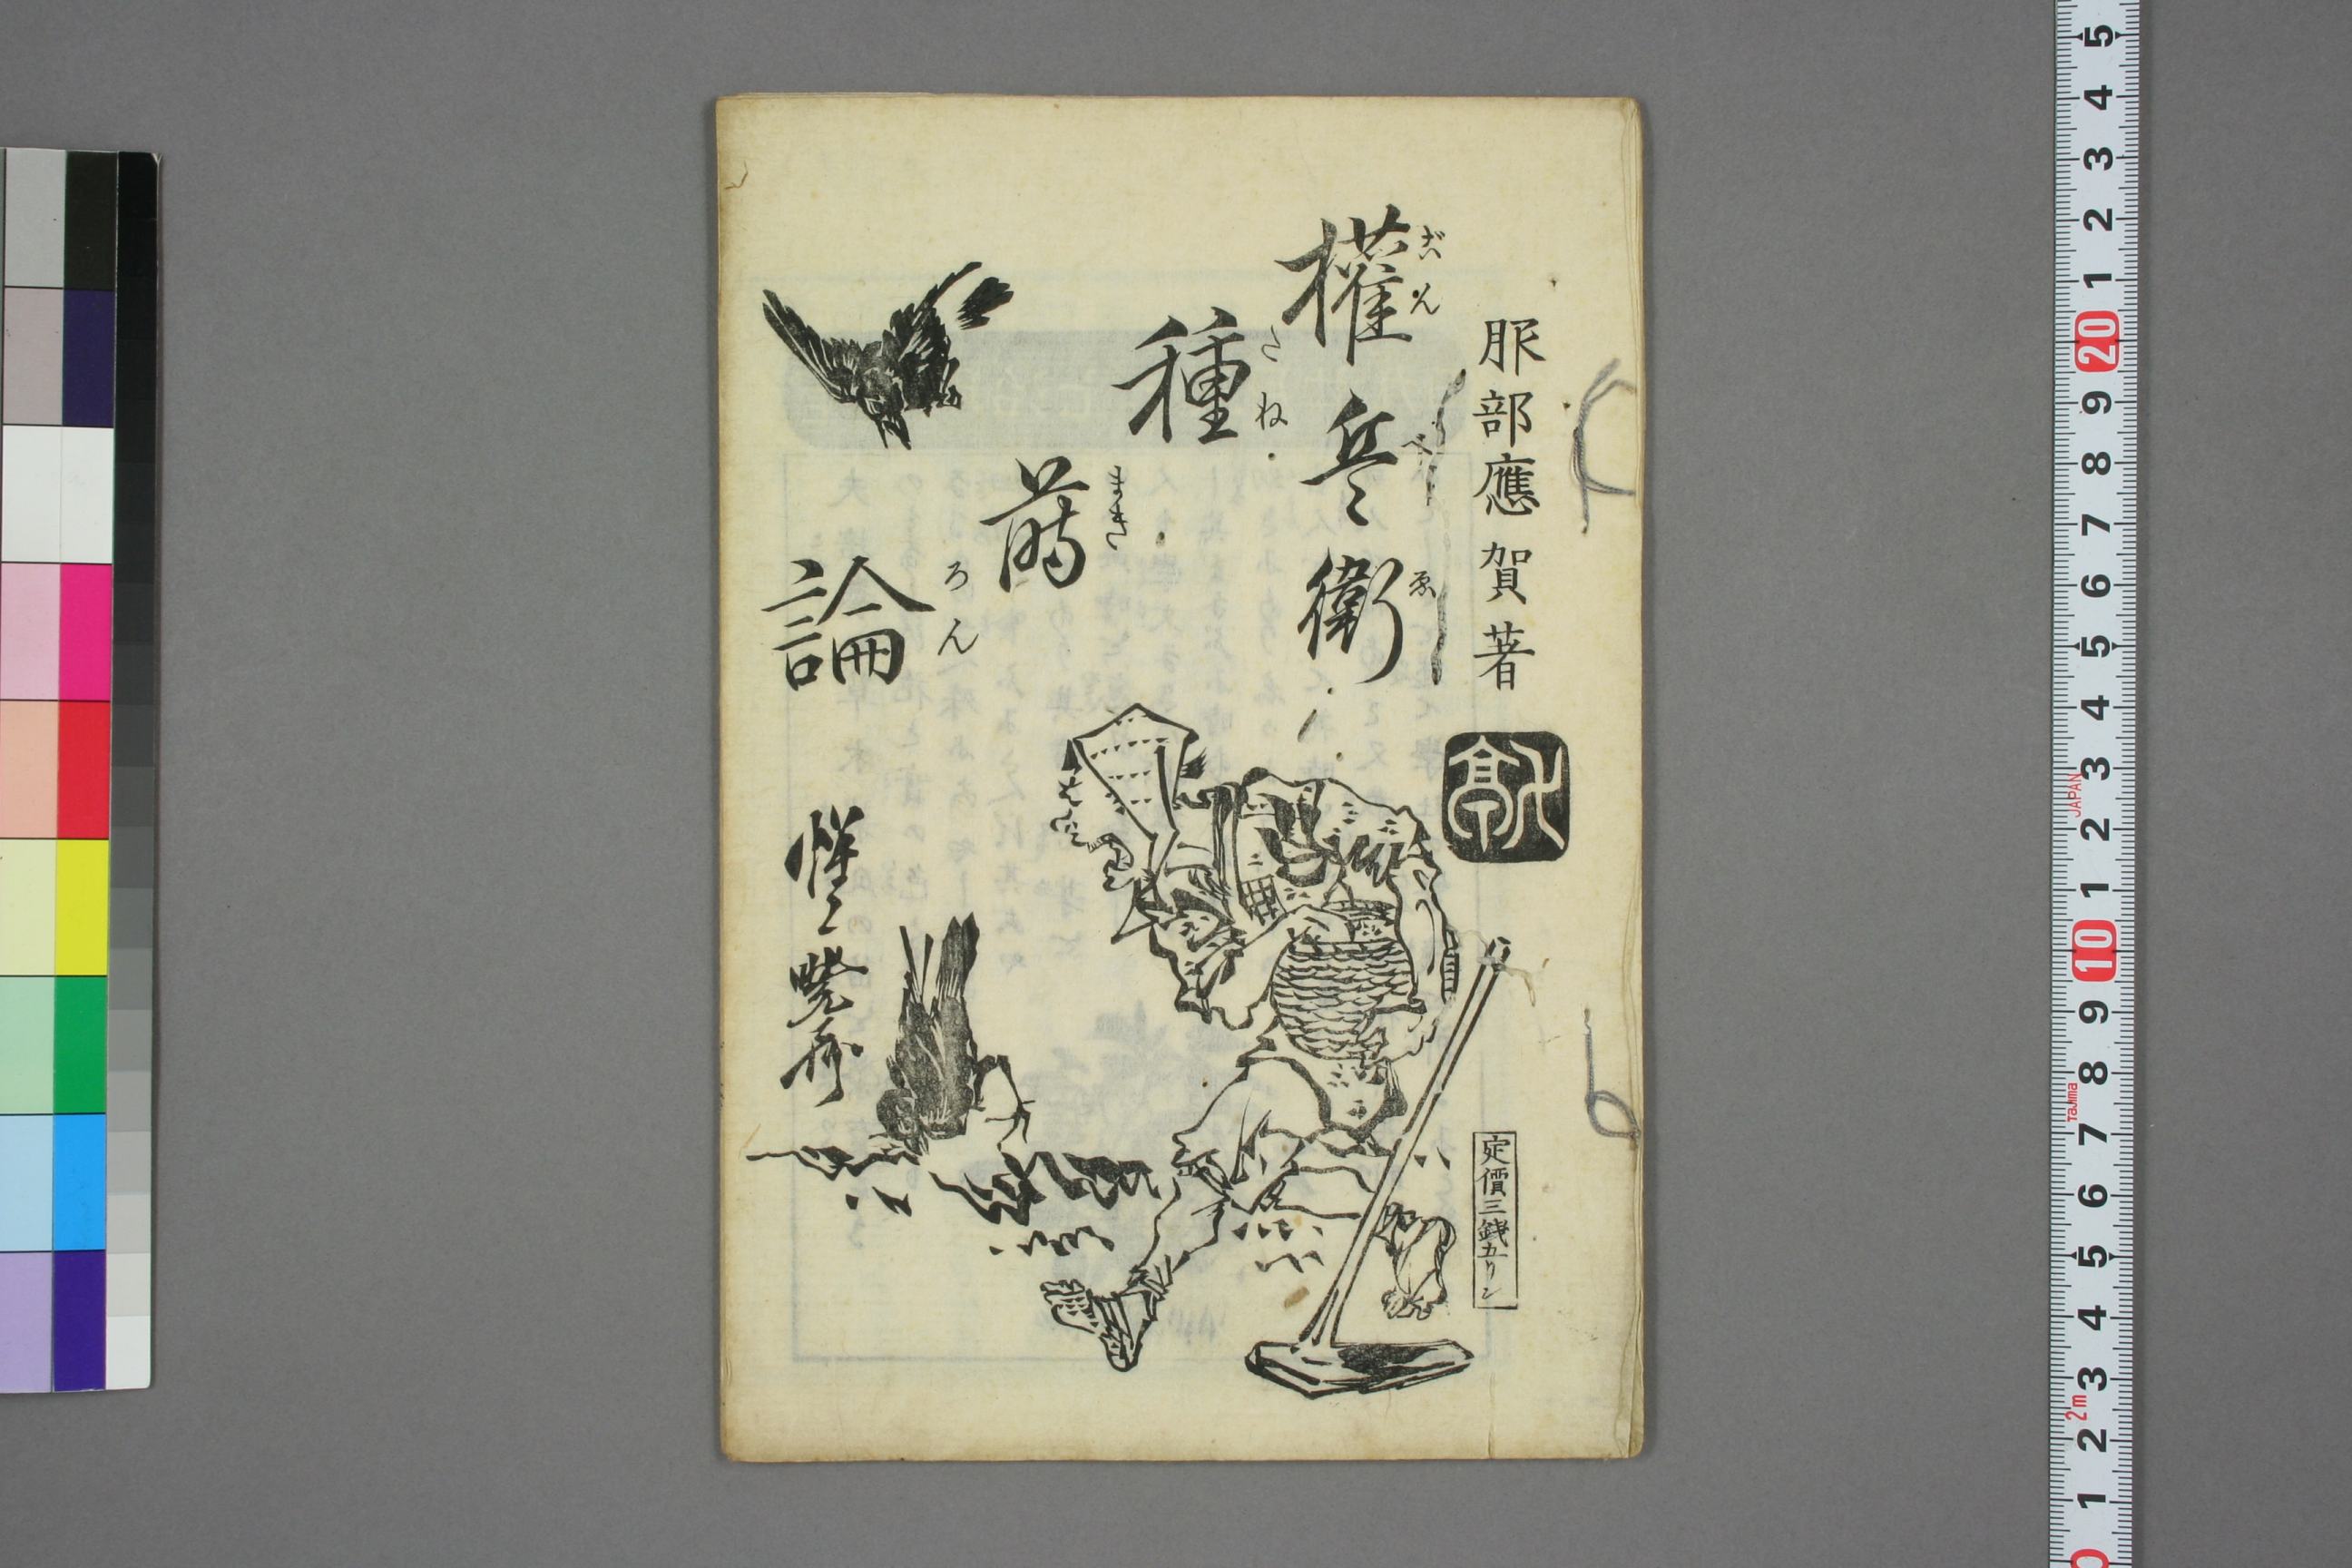 服部應賀著
權兵衛
ごんべゑ
種
たね
蒔
まき
論
ろん
惺々暁斎
定價三銭五リン
5
4
3
2
1
20
9
8
7
6
5
4
3
2
1
10
9
8
7
6
5
4
3
2
1
0
JAPAN
Tajima
2m